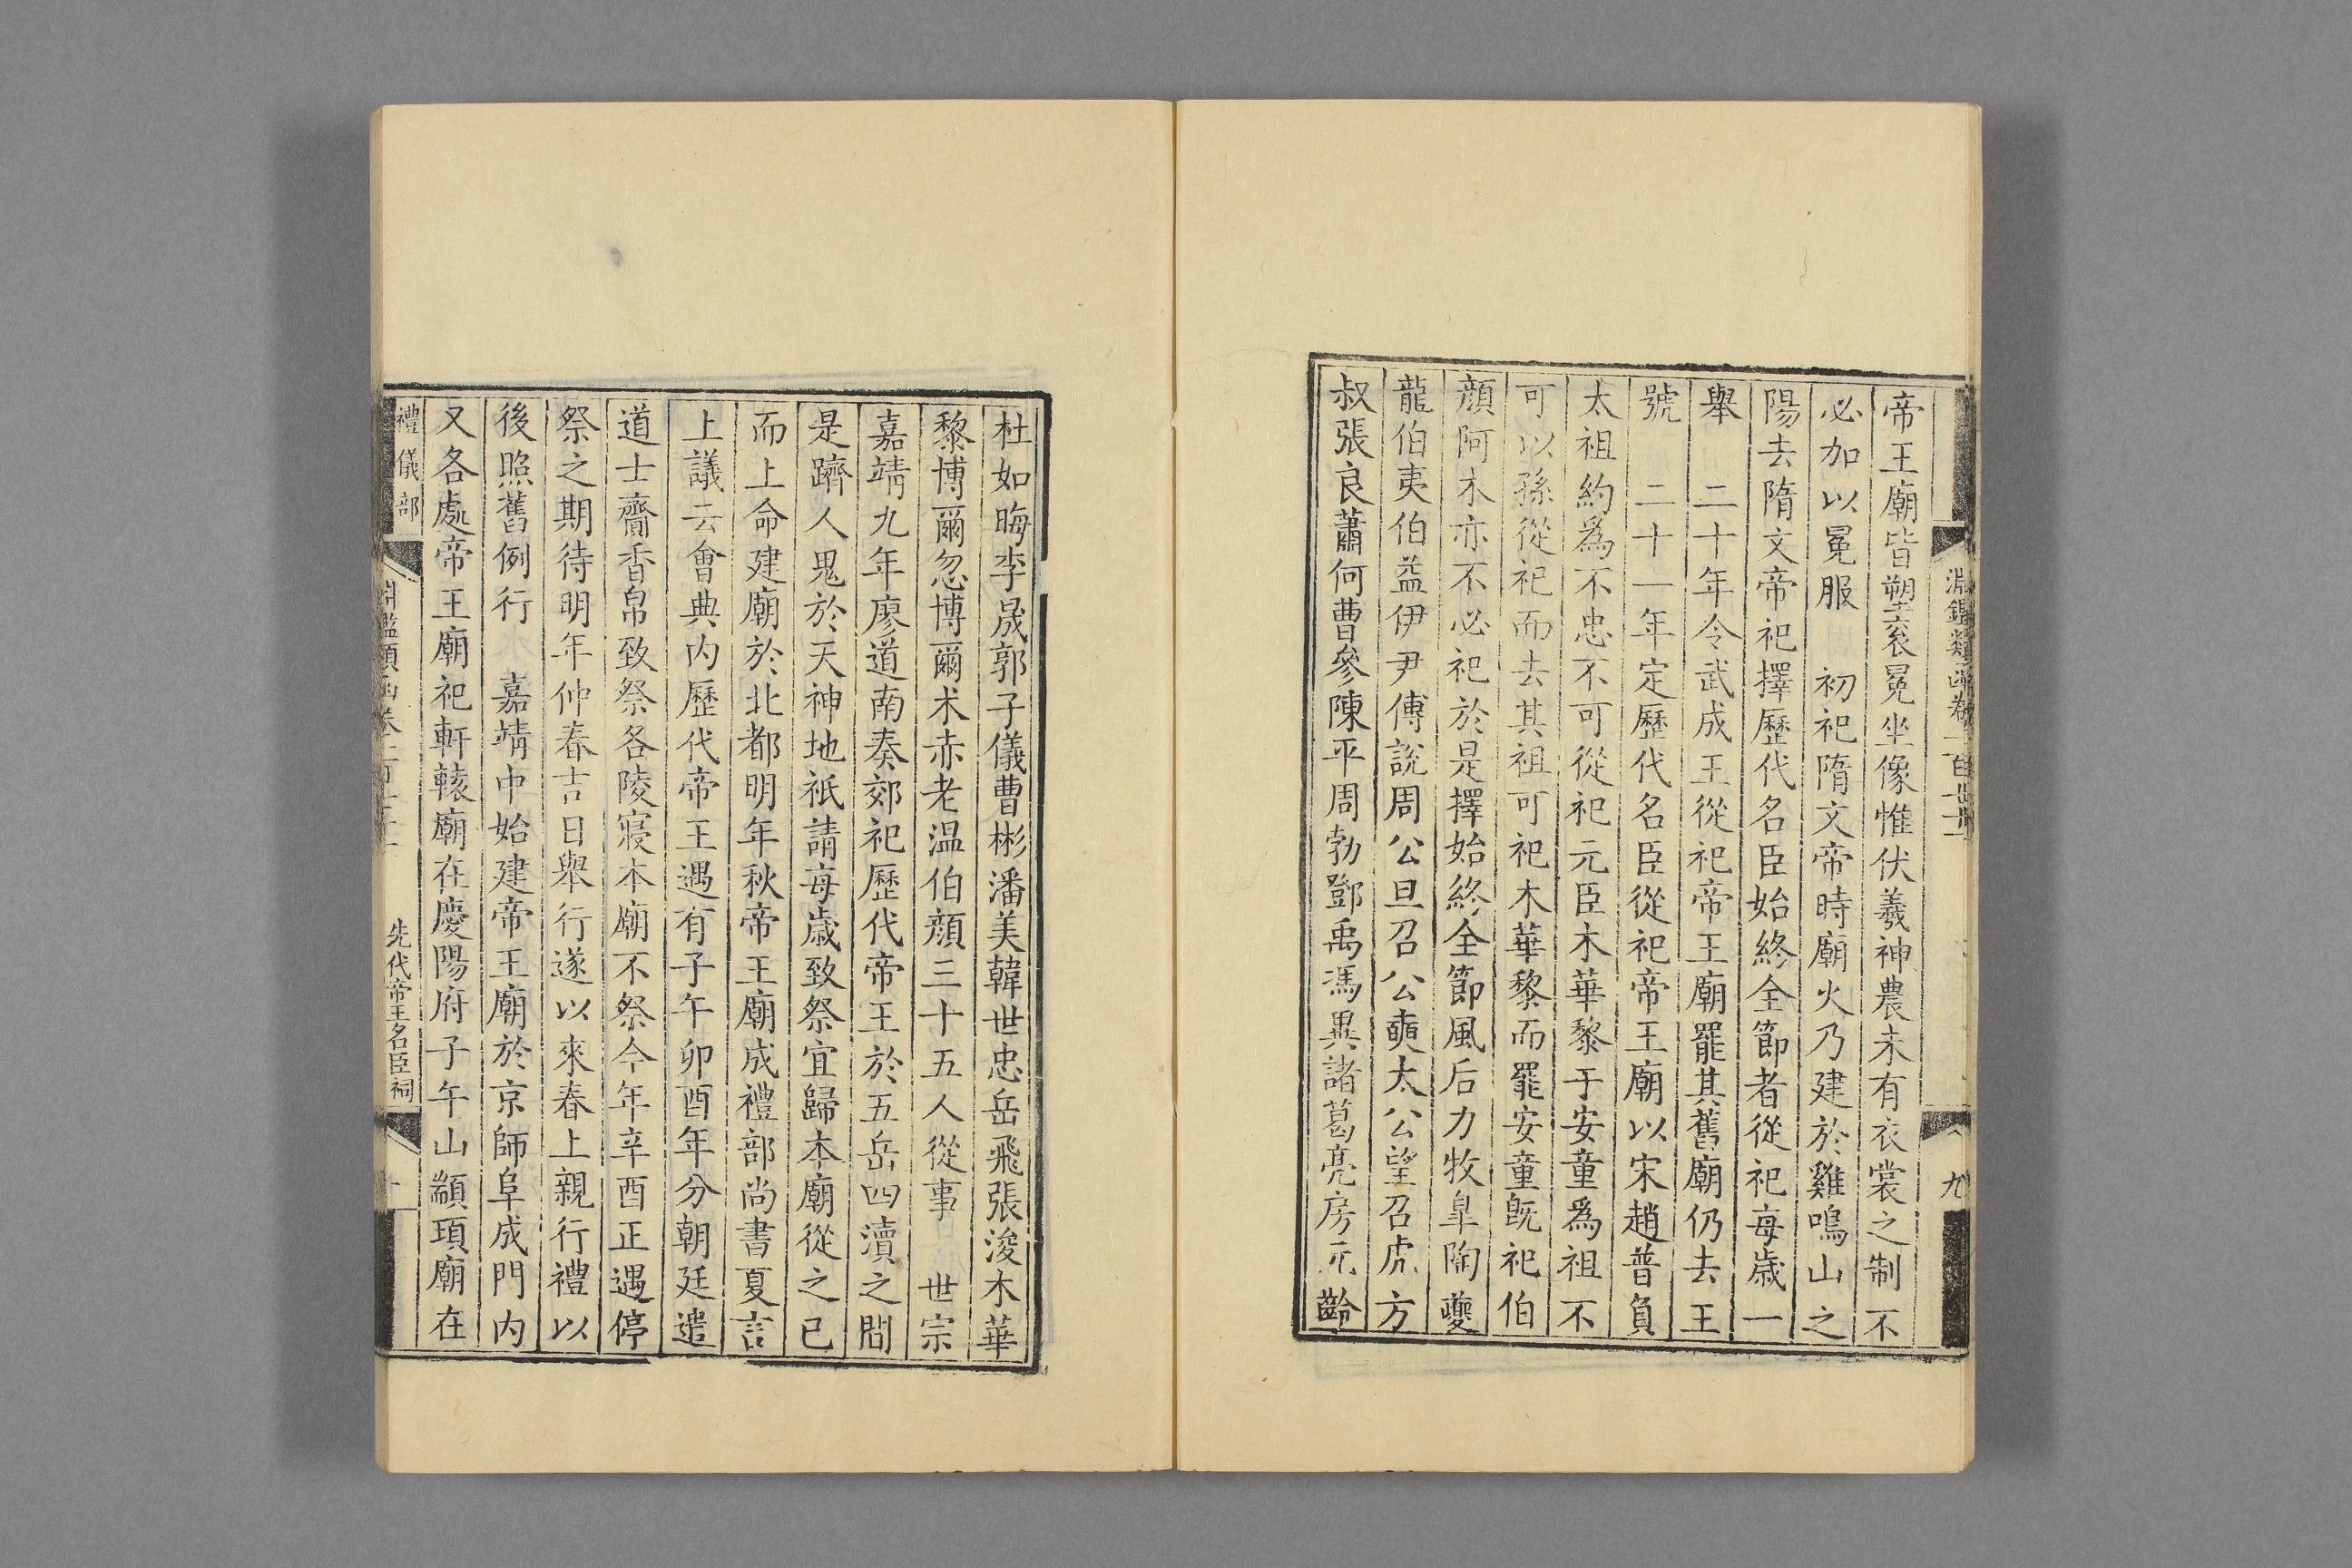 淵鑑類函卷一百
九
帝王廟皆塑袞冕坐像惟伏羲神農未有衣裳之制不
必加以冕服　初祀隋文帝時廟火乃建於雞鳴山之
陽去隋文帝祀擇歷代名臣始終全節者從祀每歲一
舉　二十年令武成王從祀帝王廟罷其舊廟仍去王
號　二十一年定歷代名臣從祀帝王廟以宋趙普負
太祖約爲不忠不可從祀元臣木華黎于安童爲祖不
可以孫從祀而去其祖可祀木華黎而罷安童旣祀伯
顔阿木亦不必祀於是擇始終全節風后力牧皐陶夔
龍伯夷伯益伊尹傅說周公旦召公奭太公望召虎方
叔張良蕭何曹參陳平周勃鄧禹馮異諸葛亮房元齡
杜如晦李晟郭子儀曹彬潘美韓世忠岳飛張浚木華
黎博爾忽博爾术赤老温伯顔三十五人從事　世宗
嘉靖九年廖道南奏郊祀歷代帝王於五岳四瀆之間
是躋人鬼於天神地祇請每歲致祭宜歸本廟從之已
而上命建廟於北都明年秋帝王廟成禮部尚書夏言
上議云會典内歷代帝王遇有子午卯酉年分朝廷遣
道士齎香帛致祭各陵寢本廟不祭今年辛酉正遇停
祭之期待明年仲春吉日舉行遂以來春上親行禮以
後照舊例行　嘉靖中始建帝王廟於京師阜成門内
又各處帝王廟祀軒轅廟在慶陽府子午山顓頊廟在
禮儀部
先代帝王名臣祠